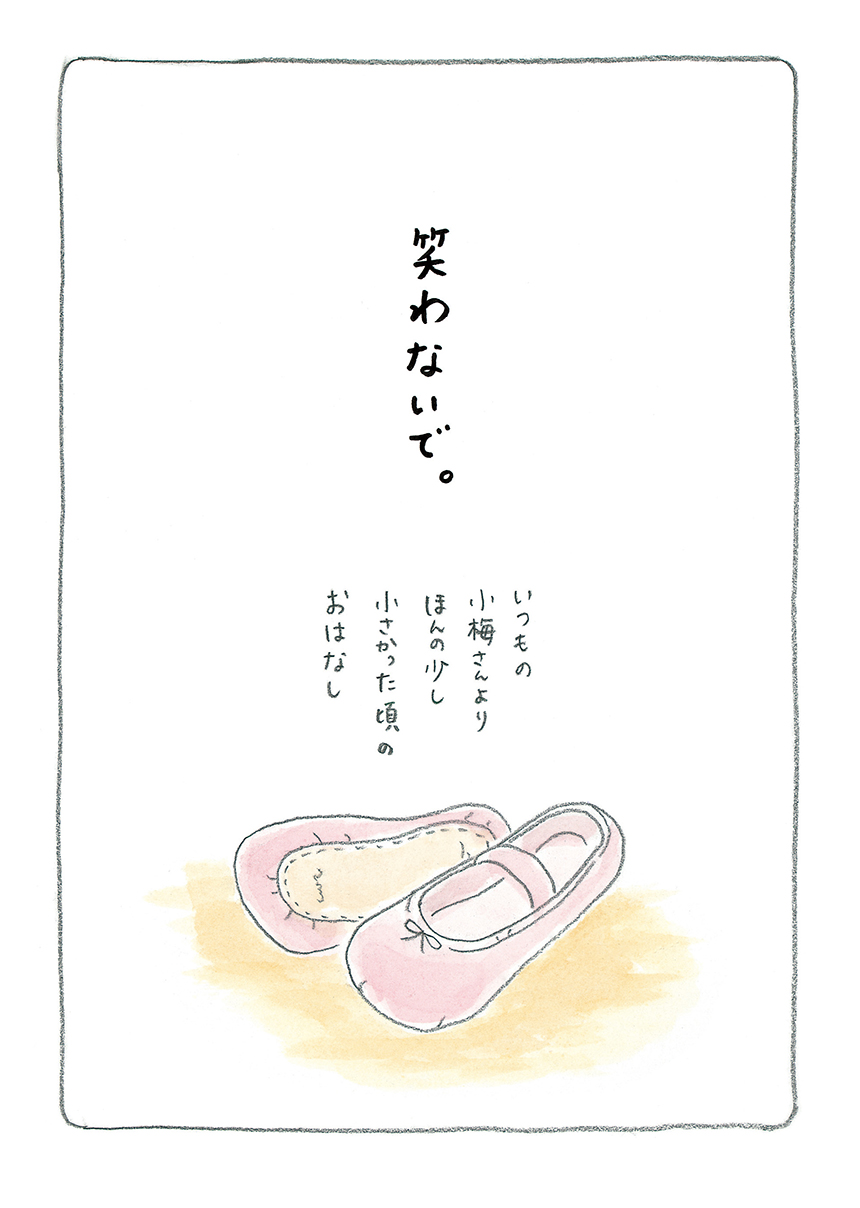 笑わないで。
いつもの
小梅さんより
ほんの少し
小さかった頃の
おはなし